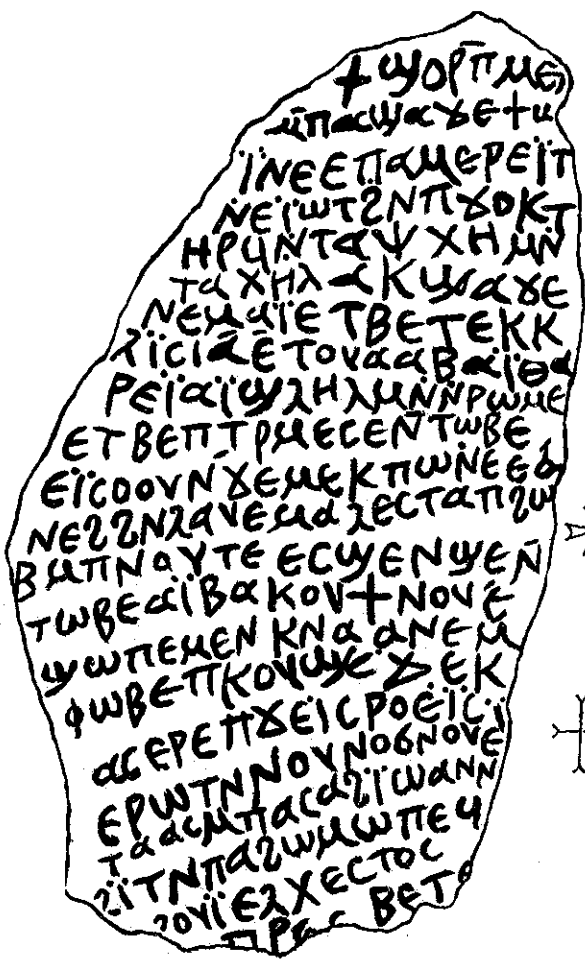 ϯ ϣⲟⲣⲡ̄ ⲙⲉⲛ
ⲙ̄ⲡⲁϣⲁϫⲉϯϣ
ⲓ̈ⲛⲉⲉⲡⲁⲙⲉⲣⲉⲓ̈ⲧ
ⲛⲉⲓ̈ⲱⲧϩⲛⲡϫⲟⲕⲧ
ⲏⲣϥⲛ̄ⲧⲁⲯⲭⲏⲙⲛ̄
ⲧⲁⲭⲏⲗⲁⲕϣⲁϫⲉ
ⲛⲉⲙⲁⲓ̈ⲉⲧⲃⲉⲧⲉⲕⲕ
ⲗⲓ̈ⲥⲓ̈ⲁⲉ̄ⲧⲟⲩⲁⲁⲃⲁⲓ̈ⲑⲁ
ⲣⲉⲓ̈ⲁⲓ̈ϣⲗⲏⲗⲙⲛ̄ⲛⲣⲱⲙⲉ
ⲉⲧⲃⲉⲡⲧⲣⲙⲉⲥⲉⲛ̄ⲧⲱⲃⲉ
ⲉⲓ̈ⲥⲟⲟⲩⲛϫⲉⲙⲉⲕⲡⲱⲛⲉⲉⲃ
ⲛⲉϩϩⲛⲗⲁⲩⲉⲙⲁⲗⲉⲥⲧⲁⲡϩⲱ
ⲃⲙⲡⲛⲟⲩⲧⲉⲉⲥϣⲉⲛϣⲉⲛ̄
ⲧⲱⲃⲉⲁⲓ̈ⲃⲁⲕⲟⲩϯⲛⲟⲩⲉ
ϣⲱⲡⲉⲙⲉⲛⲕⲛⲁⲁⲛⲉⲙ
ⲫⲱⲃⲉⲡⲕⲟⲩϣⲉϫⲉⲕ
ⲁⲥⲉⲣⲉⲡϫⲉⲓ̈ⲥⲣⲟⲉⲓ̈ⲥⲓ̈
ⲉⲣⲱⲧⲛⲛⲟⲩⲛⲟϭⲛⲟⲩⲉ
ⲧⲁⲁⲥⲙⲡⲁⲥⲁϩⲓ̈ⲱⲁⲛⲛ
ϩⲓ̈ⲧⲛⲡⲁϩⲱⲙⲱⲡⲉϥ
ϩⲟⲩⲓ̈ⲉⲗⲭⲉⲥⲧⲟⲥ
ⲡⲣⲉⲥⲃⲉⲧⲉ